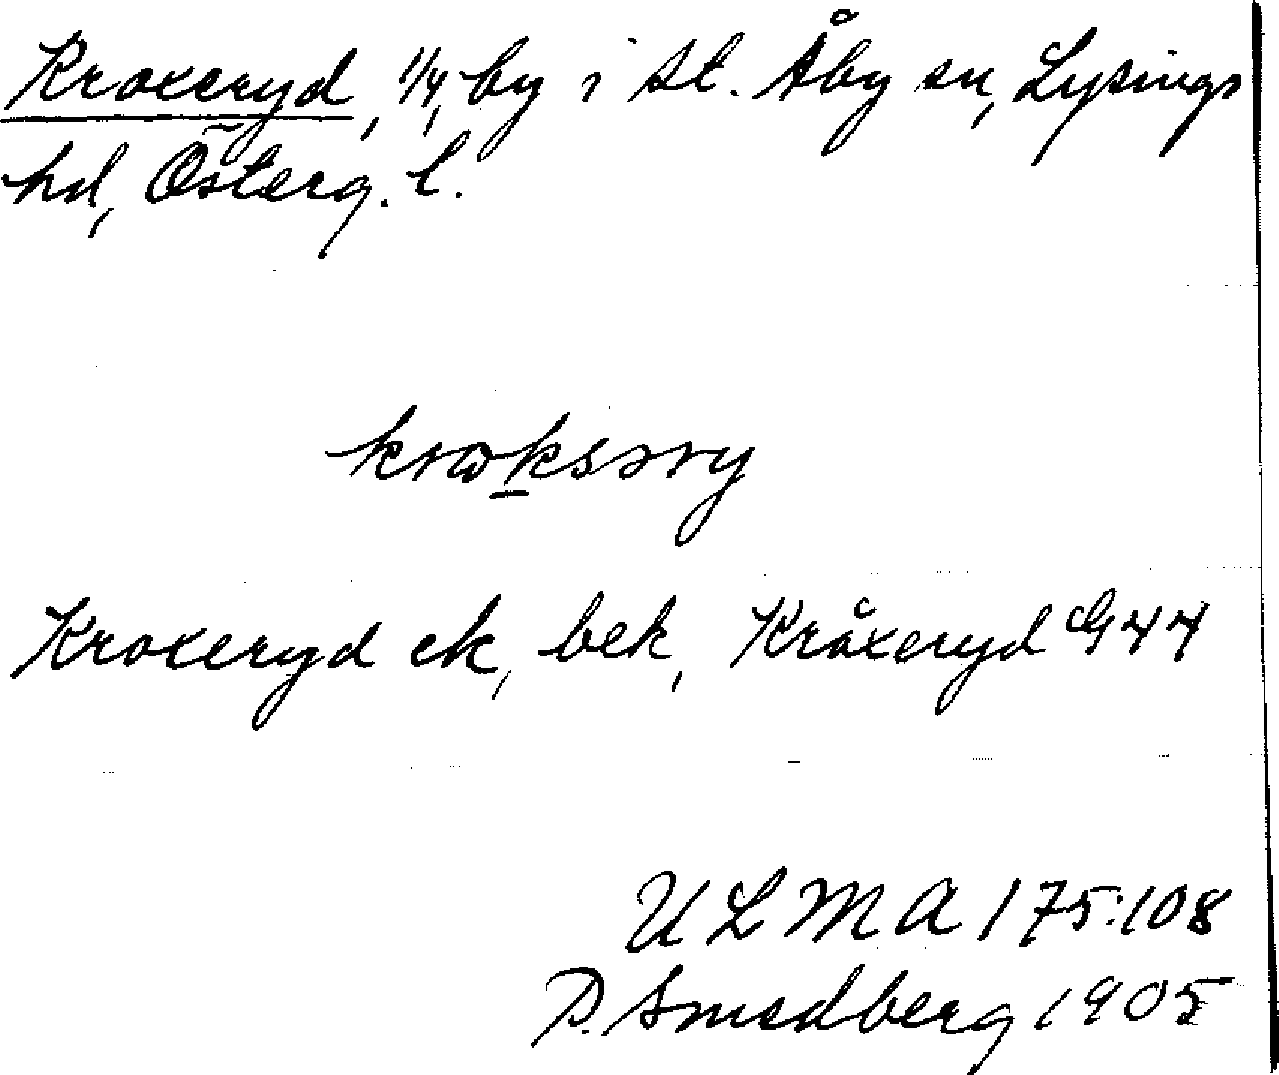 Kroxeryd, 1/4, by i St. Åby sn, Lysings
hd, Österg. l.
krɷksəry
Kroxeryd ek, bek, Kråxeryd G44
ULMA 175:108
P. Smedberg 1905